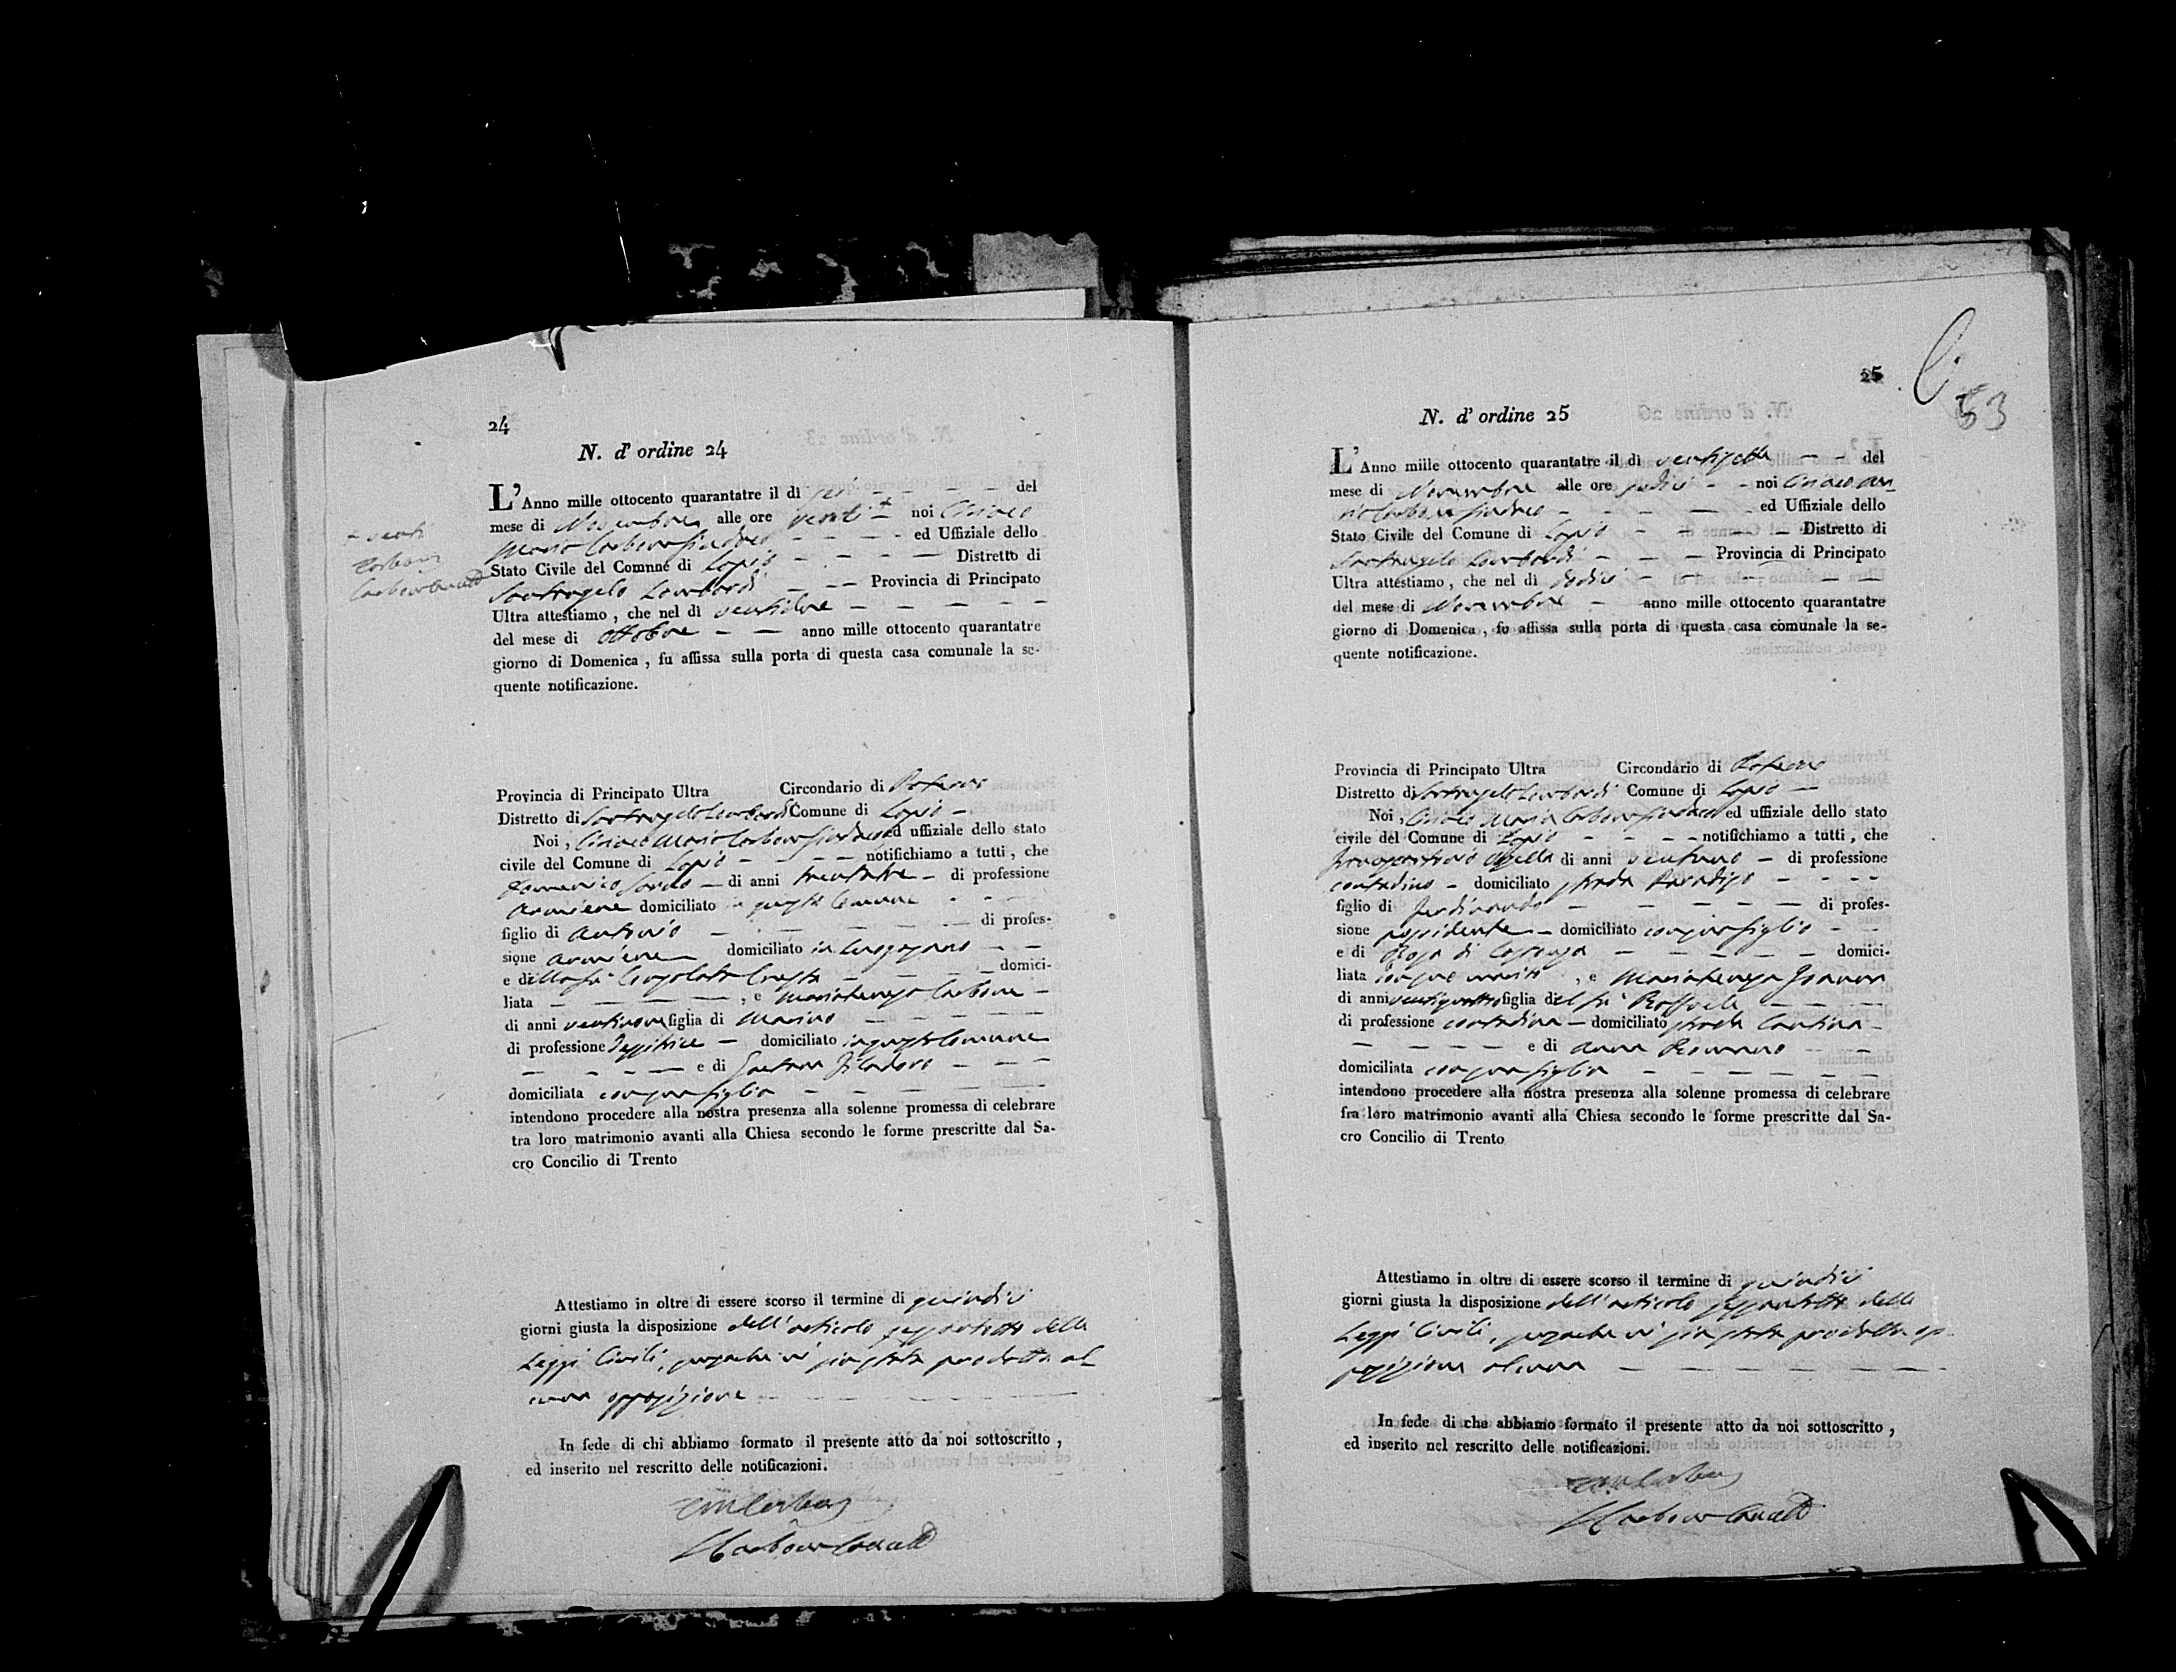 24
N. d' ordine 24
L'Anno mille ottocento quarantatre il dì sei del
mese di Novembre alle ore venti noi Ciriaco
Maria Carbone Sindaco ed Uffiziale dello
Stato Civile del Comune di Lapio Distretto di
Santangelo Lombardi Provincia di Principato
Ultra attestiamo, che nel dì ventidue
del mese di Ottobre anno mille ottocento quarantatre
giorno di Domenica, fu affissa sulla porta di questa casa comunale la se-
quente notificazione.
Provincia di Principato Ultra Circondario di
Distretto di Santangelo Lombardi Comune di Lapio
Noi, Ciriaco Maria Carbone Sindaco ed uffiziale dello stato
civile del Comune di Lapio notifichiamo a tutti, che
Domenico di anni trentatre di professione
domiciliato in questo Comune
figlio di Antonio di profes-
sione domiciliato in
e di domici-
liata , e Mariateresa Carbone
di anni ventinove figlia di Marino
di professione domiciliato in questo Comune
e di Gaetana
domiciliata con sua figlia
intendono procedere alla nostra presenza alla solenne promessa di celebrare
tra loro matrimonio avanti alla Chiesa secondo le forme prescritte dal Sa-
cro Concilio di Trento
Attestiamo in oltre di essere scorso il termine di quindici
giorni giusta la disposizione dell'articolo sessantotto delle
Leggi Civili, senzache vi sia stata prodotta al
cuna opposizione
In fede di chi abbiamo formato il presente atto da noi sottoscritto,
ed inserito nel rescritto delle notificazioni.
+ venti
25
53
N. d' ordine 25
L'Anno mille ottocento quarantatre il dì ventisette del
mese di Novembre alle ore sedici noi Ciriaco Ma
ria Carbone Sindaco ed Uffiziale dello
Stato Civile del Comune di Lapio Distretto di
Santangelo Lombardi Provincia di Principato
Ultra attestiamo, che nel dì dodici
del mese di Novembre anno mille ottocento quarantatre
giorno di Domenica, fu affissa sulla porta di questa casa comunale la se-
quente notificazione.
Provincia di Principato Ultra Circondario di
Distretto di Santangelo Lombardi Comune di Lapio
Noi, Ciriaco Maria Carbone Sindaco ed uffiziale dello stato
civile del Comune di Lapio notifichiamo a tutti, che
di anni ventuno di professione
contadino domiciliato strada Paradiso
figlio di Ferdinando di profes-
sione possidente domiciliato con suo figlio
e di Rosa di domici-
liata con suo marito , e Mariateresa
di anni ventiquattro figlia del fu Raffaele
di professione contadina domiciliato strada Cantina
e di Anna Romano
domiciliata con sua figlia
intendono procedere alla nostra presenza alla solenne promessa di celebrare
fra loro matrimonio avanti alla Chiesa secondo le forme prescritte dal Sa-
cro Concilio di Trento
Attestiamo in oltre di essere scorso il termine di quindici
giorni giusta la disposizione dell'articolo sessantotto delle
Leggi Civili, senzache vi sia stata prodotta op
posizione alcuna
In fede di che abbiamo formato il presente atto da noi sottoscritto,
ed inserito nel rescritto delle notificazioni.